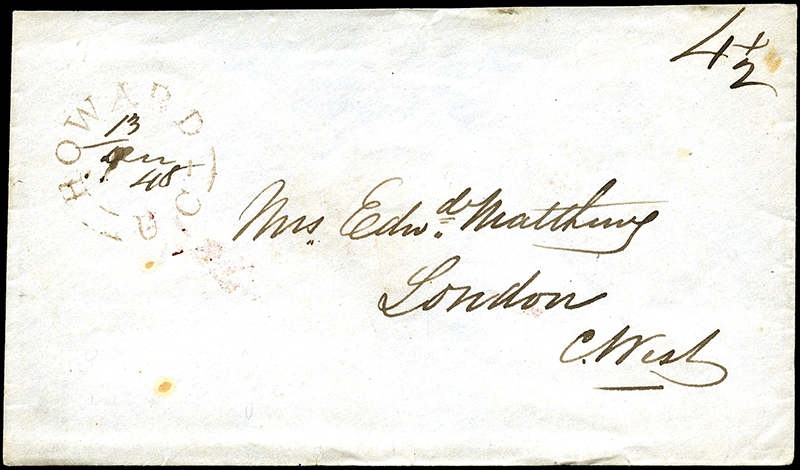 4 1/2
HOWARD
13
48
U C
Mrs. Edwd. Matthews
London
C. West